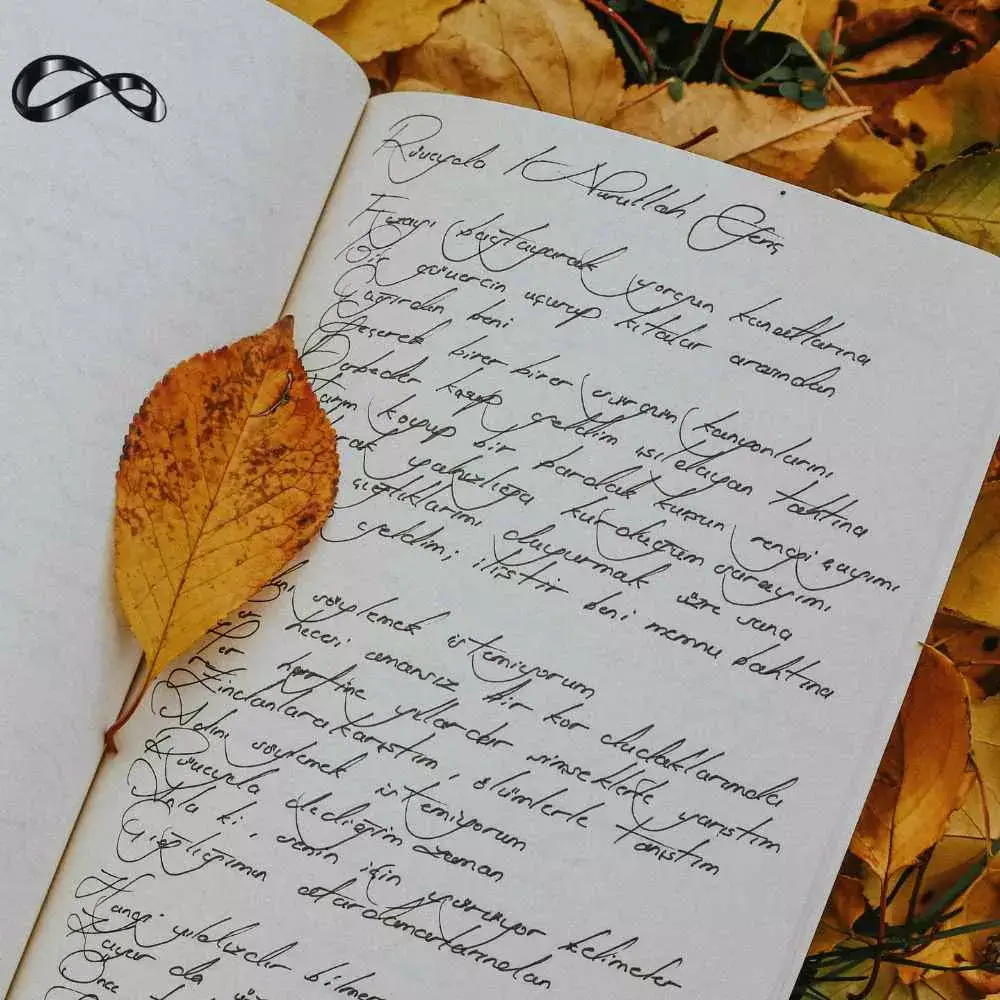 Rüveyda / Nurullah Genç
Fezayı bağlayarak yorgun kanatlarına
Bir güvercin uçurup kıtalar arasından
Çağırdın beni
Geçerek birer birer sürgün kanyonlarını
Derbeder koşup geldim ışı olayan tahtına
Yarım koyup bir bardak kurşun rengi çayımı
yalnızlığa kurduğum sarayımı
çığlıklarımı duyurmak üzre sana
geldim; iliştir beni memnu bahtına
söylemek istemiyorum
hecesi amansız bir kor dudaklarımda
Her harfine yıllardır şimşeklerle yarıştım
Zindanlara karıştım, ölümlerle tanıştım
Adını söylemek istemiyorum
Rüveyda dediğim zaman
Anla ki, senin için yürüyor kelimeler
Çığlığımın atardamarlarından
Hangi yıldızdır bilmem
Kayar da
Önce